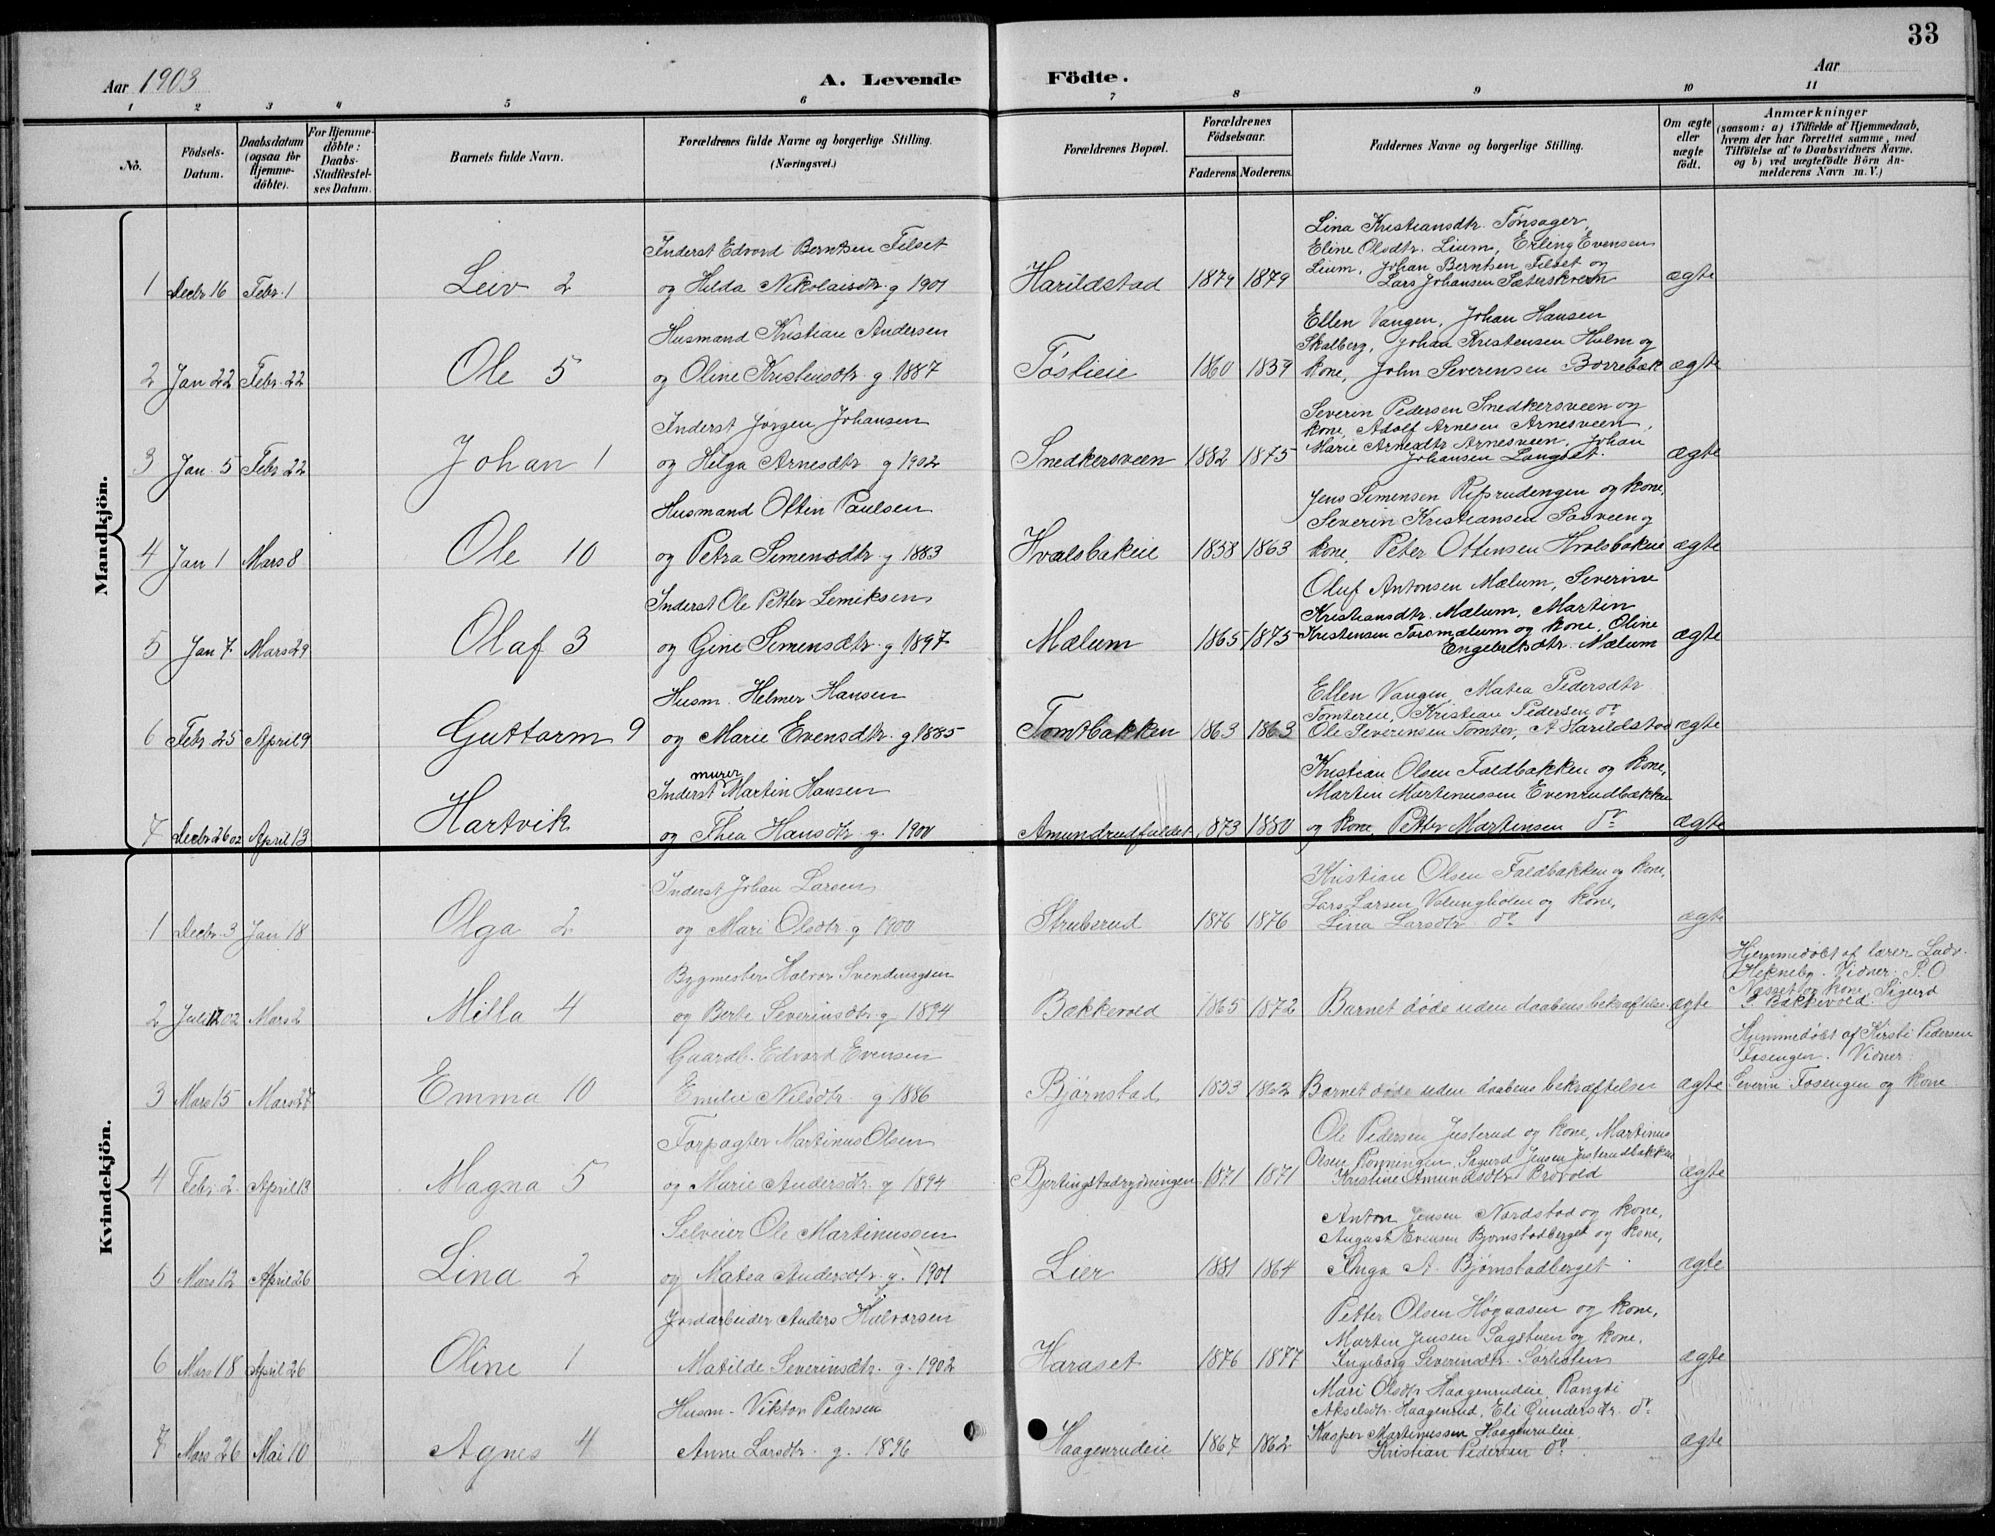 33
Aar 1903 A. Levende Födte. Aar
1 2 3 4 5 6 7 8 9 10 11
No. Födsels-Datum. Daabsdatum (ogsaa for Hjemmedöbte). For Hjemmedöbte: Daabs-Stadfæstelses Datum. Barnets fulde Navn. Forældrenes fulde Navne og borgerlige Stilling. (Næringsvei.) Forældrenes Bopæl. Forældrenes Födselsaar. Faderens. Moderens. Faddernes Navne og borgerlige Stilling. Om ægte eller uægte födt. Anmærkninger (saasom: a) i Tilfælde af Hjemmedaab, hvem der har forrettet samme, med Tilföielse af to Daabsvidners Navne. og b) ved uægtefödte Börn Anmelderens Navn m.V.)
Mandkjön.
Inderst Edvard Berntsen Filset
Lina Kristiansdtr. Tønsager,
Eline Olsdtr. Lium, Erling Evensen
Lium, Johan Berntsen Filset og
1 Decbr 16 Febr. 1 Leiv 2 og Hilda Nikolaisdtr. g 1901 Harildstad 1879 1879 Lars Johansen Sæterskvern ægte
Husmand Kristian Andersen
Ellen Vangen, Johan Hansen
Skalberg, Johan Kristensen Holm og
2 Jan 22 Febr. 22 Ole 5 og Oline Kristensdtr. g 1887 Tøstieie 1860 1859 kone, John Severensen Borrebæk ægte
Inderst Jørgen Johansen
Severin Pedersen Snedkersveen og
kone, Adolf Arnesen Arnesveen,
Marie Arnesdtr Arnesveen, Johan
3 Jan. 5 Febr 22 Johan 1 og Helga Arnesdtr g 1902 Snedkersveen 1882 1875 Johansen Langset. ægte
Husmand Ottin Paulsen
Jens Simensen Rifsrudengen og kone,
Severin Kristiansen Posveen og
4 Jan 1 Mars 8 Ole 10 og Petra Simensdtr g 1883 Hvalsbakeie 1858 1863 kone, Peter Ottensen Hvalsbakeie ægte
Inderst Ole Petter Lemiksen
Oluf Antonsen Mælum, Severine
Kristiansdtr. Mælum, Martin
Kristensen Torsmælum og kone, Oline
5 Jan 7 Mars 29 Olaf 3 og Gine Simensdtr. g 1897 Mælum 1865 1875 Engebretsdtr. Mælum ægte
Husm. Helmer Hansen
Ellen Vangen, Matea Pedersdtr
Tomtereie, Kristian Pedersen do
6 Febr. 25 April 9 Guttorm 9 og Marie Evensdtr. g 1885 Tomtbakken 1863 1863 Ole Severensen Tomter, A Harildstad ægte
murer
Inderst Martin Hansen
Kristian Olsen Faldbakken og kone,
Martin Martinussen Evenrudbakken
7 Decbr 26 02 April 13 Hartvik og Thea Hansdtr. g. 1900 Amundrudfaldet 1873 1880 og kone, Petter Martensen do ægte
Kvindekjön.
Inderst Johan Larsen
Kristian Olsen Faldbakken og kone,
Lars Larsen Volungholen og kone,
1 Decbr. 3 Jan 18 Olga 2 og Mari Olsdtr. g 1900 Struberud 1876 1876 Lina Larsdtr. do ægte
Bygmester Halvor Svendungsen
Hjemmedøbt af lærer Ludv.
Hekneby. Vidner: P. O
Næsset og kone, Sigurd
2 Juli 12 02 Mars 2 Milla 4 og Berte Severinsdtr. g 1894 Bækkevold 1865 1872 Barnet døde uden daabens bekræftelse. ægte Bækkevold
Gaardb. Edvard Evensen
Hjemmedøbt af Kirsti Pedersen
Fosengen. Vidner:
3 Mars 15 Mars 27 Emma 10 Emilie Nilsdtr. g 1886 Bjørnstad 1853 1862 Barnet døde uden daabens bekræftelse ægte Severin Fosengen og kone
Forpagter Martinus Olsen
Ole Pedersen Justerud og kone, Martinus
Olsen Rønningen, Sigurd Jensen Justerudbakken
4 Febr. 2 April 13 Magna 5 og Marie Andersdtr. g 1894 Bjertingstadrydningen 1871 1871 Kristine Amundsdtr Brovold ægte
Selveier Ole Martinussen
Anton Jensen Nordstad og kone,
August Evensen Bjørnstadberget og kone,
5 Mars 12 April 26 Lina 2 og Matea Andersdtr. g. 1901 Lier 1881 1864 Inga A. Bjørnstadberget ægte
Jordarbeider Anders Halvorsen
Petter Olsen Høgaasen og kone,
Martin Jensen Sagstuen og kone,
6 Mars 18 April 26 Oline 1 Matilde Severinsdtr. g. 1902 Haraset 1876 1877 Ingeborg Severensdtr. Sørlisten ægte
Husm- Viktor Pedersen
Mari Olsdtr Haagenrudeie, Rangdi
Akselsdtr. Haagenrud, Eli Gundersdtr. do
Kasper Martinussen Haagenrudeie
7 Mars 26 Mai 10 Agnes 4 Anne Larsdtr. g. 1896 Haagenrudeie 1867 1862 Kristian Pedersen do ægte